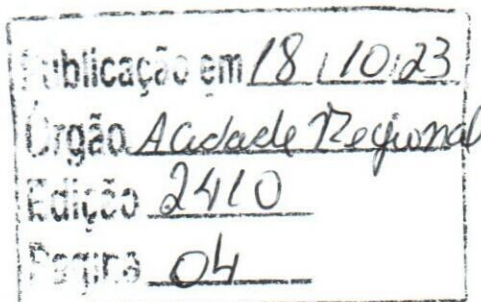 Publicação em 18/10/23
Órgão A cidade Regional
Edição 2410
Pagina 04